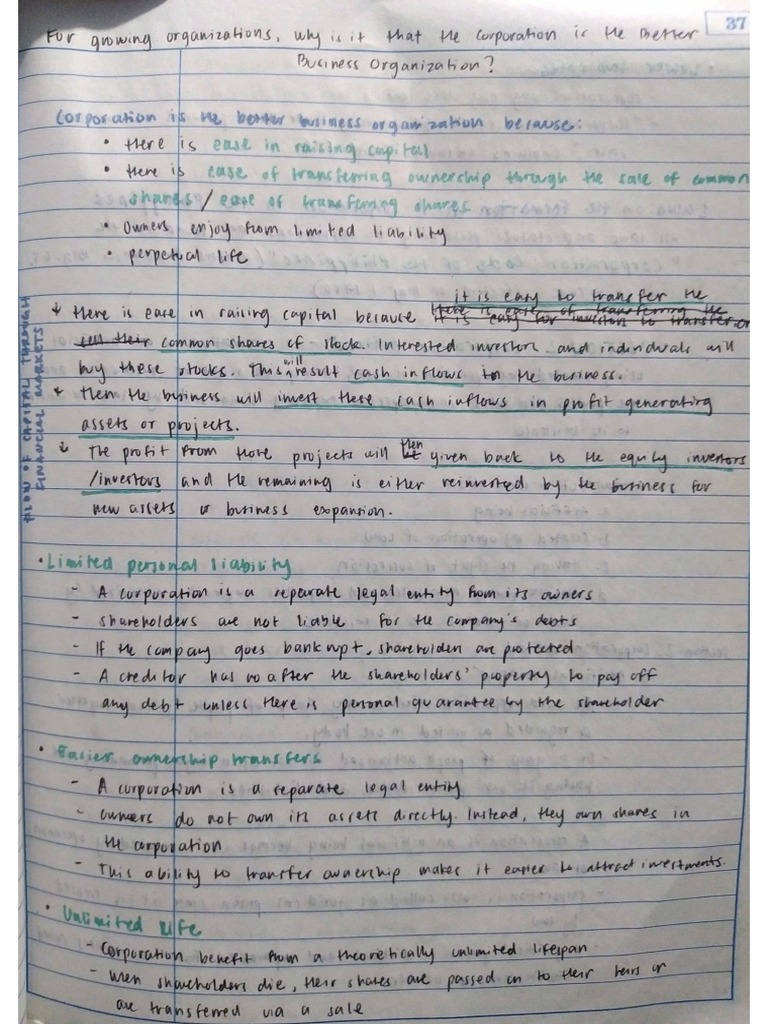 37
For growing organizations, why is it that the corporation is the better
Business Organization?
Corporation is the better business organization because:
• there is ease in raising capital
• there is ease of transferring ownership through the sale of common
shares / ease of transferring shares
• owners enjoy from limited liability
• perpetual life
FLOW OF CAPITAL THROUGH
FINANCIAL MARKETS
it is easy to transfer the
↓ there is ease in raising capital because there is ease of transferring the
it is easy for investors to transfer or
sell their common shares of stock. Interested investors and individuals will
buy these stocks. This will result cash inflows to the business.
↓ then the business will invest these cash inflows in profit generating
assets or projects.
↓ The profit from those projects will then given back to the equity investors
/investors and the remaining is either reinvested by the business for
new assets or business expansion.
• Limited personal liability
- A corporation is a separate legal entity from its owners
- shareholders are not liable for the company's debts
- If the company goes bankrupt, shareholders are protected
- A creditor has no after the shareholders' property to pay off
any debt unless there is personal guarantee by the shareholder
• Easier ownership transfers
- A corporation is a separate legal entity
- owners do not own its assets directly. Instead, they own shares in
the corporation
- This ability to transfer ownership makes it easier to attract investments.
• Unlimited life
- Corporation benefit from a theoretically unlimited lifespan
- When shareholders die, their shares are passed on to their heirs or
are transferred via a sale